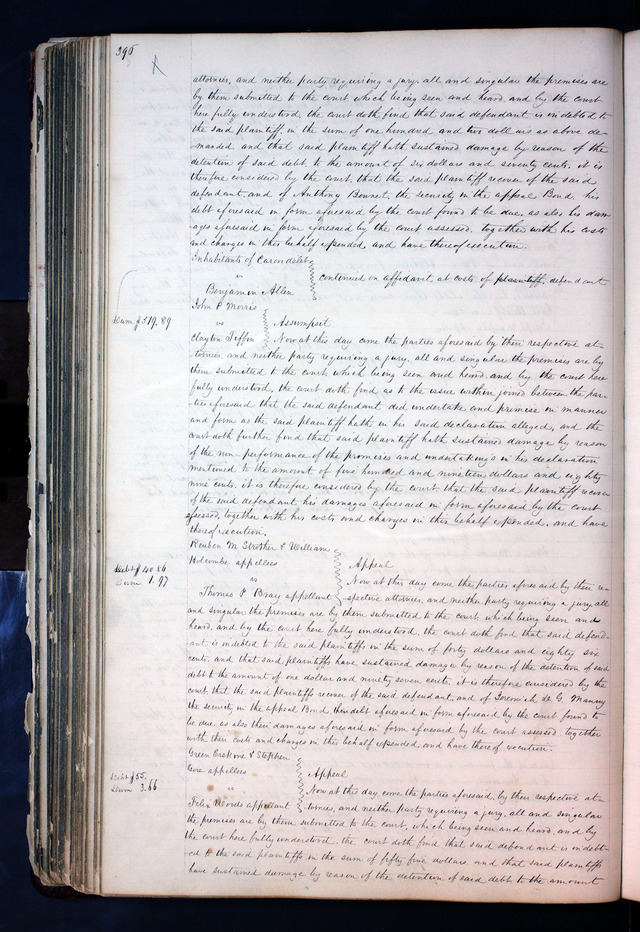 396
attornies, and neither party requiring a jury, all and singular the premises are
by them submitted to the court which being seen and heard, and by the court
here fully understood, the court doth find that said defendant is indebted to
the said plaintiff, in the sum of one hundred and two dollars as above de-
manded, and that said plaintiff hath sustained damage by reason of the
detention of said debt, to the amount of six dollars and seventy cents. it is
therefore considered by the court, that the said plaintiff recover of the said
defendant, and of Anthony Bonnet, the security in the appeal Bond his
debt aforesaid in form aforesaid by the court found to be due, as also his dam-
ages aforesaid in form aforesaid by the court assessed, together with his costs
and charges in this behalf expended, and have thereof execution.
Inhabitants of Carondelet
vs
continued on affidavit at costs of plaintiff, defendant
Benjamin Allen
John P Morris
Dam $519.89
vs
Assumpsit
Clayton Tiffin
Now at this day come the parties aforesaid by their respective at-
tornies, and neither party requiring a jury, all and singular the premises are by
them submitted to the court, which being seen and heard, and by the court here
fully understood, the court doth find as to the issue within joined between the par-
ties aforesaid that the said defendant did undertake and promise in manner
and form as the said plaintiff hath in his said declaration alleged, and the
court doth further find that said plaintiff hath sustained damage by reason
of the non-performance of the promises and undertakings in his declaration
mentioned to the amount of five hundred and nineteen dollars and eighty
nine cents. it is therefore considered by the court that the said plaintiff recover
of the said defendant his damages aforesaid in form aforesaid by the court
assessed, together with his costs and charges in this behalf expended, and have
thereof execution.
Reuben M Strother & William
Holcombe appellees
Appeal
Debt $40.86
Dam 1.97
vs
Now at this day come the parties aforesaid by their re-
Thomas P Bray appellant
spective attornies, and neither party requiring a jury, all
and singular the premises are by them submitted to the court, which being seen and
heard, and by the court here fully understood, the court doth find that said defend-
ant is indebted to the said plaintiffs in the sum of forty dollars and eighty six
cents, and that said plaintiffs have sustained, damage by reason of the detention of said
debt to the amount of one dollar and ninety seven cents. it is therefore considered by the
court that the said plaintiffs recover of the said defendant, and of Jeremiah de G. Manny
the security in the appeal Bond their debt aforesaid in form aforesaid by the court found to
be due, as also their damages aforesaid in form aforesaid, by the court assessed, together
with their costs and charges in this behalf expended, and have thereof execution.
Green Erskine & Stephen
Gore appellees
Appeal
Debt $55.
Dam 3.66
vs
Now at this day come the parties aforesaid, by their respective at-
Felix Woods appellant
tornies, and neither party requiring a jury, all and singular
the premises are by them submitted to the court, which being seen and heard, and by
the court here fully understood, the court doth find that said defendant is indebt-
ed to the said plaintiffs in the sum of fifty five dollars, and that said plaintiffs
have sustained damage by reason of the detention of said debt to the amount